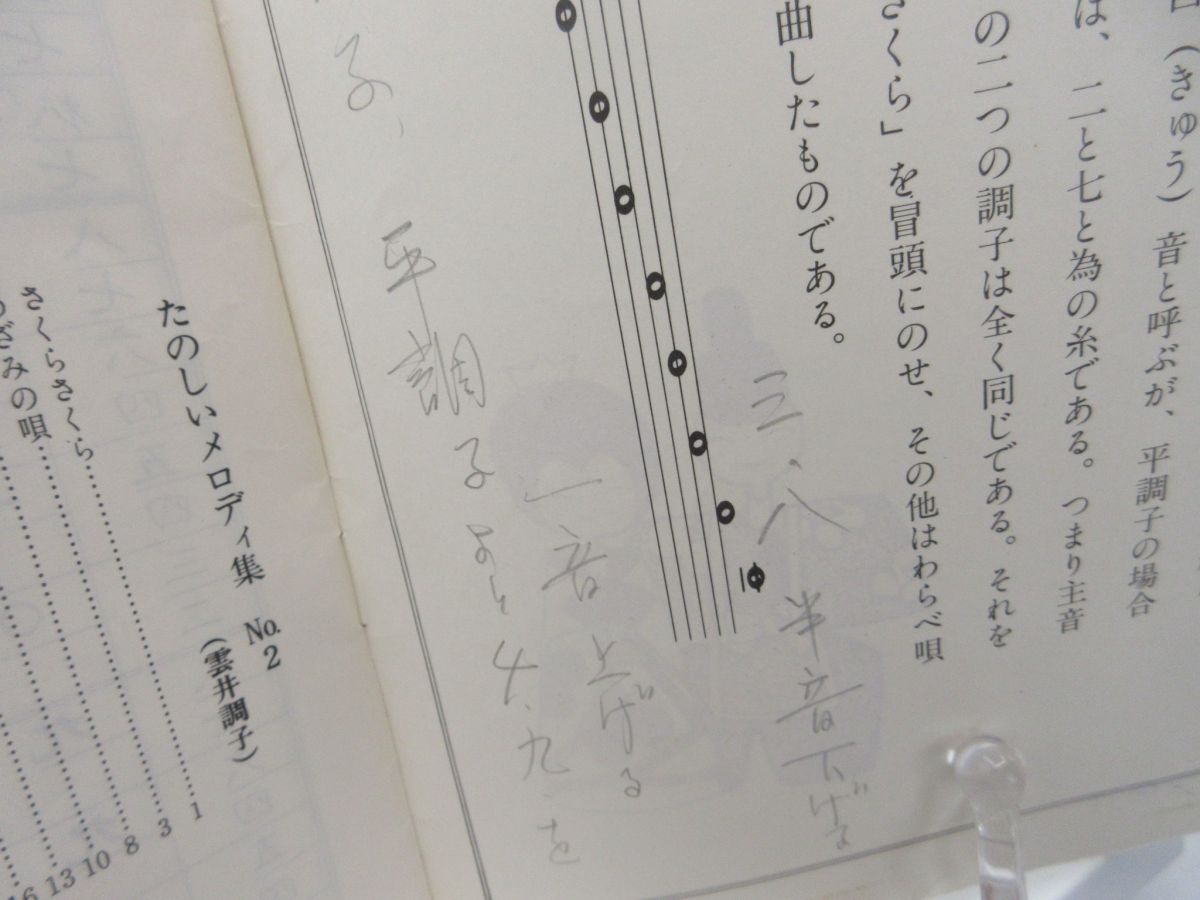 宮（きゅう）音と呼ぶが、平調子の場合
は、二と七と為の糸である。つまり主音
の二つの調子は全く同じである。それを
さくら」を冒頭にのせ、その他はわらべ唄
曲したものである。
三、八半音下げる
一音上げる
子、平調子より4、九、を
たのしいメロディ集 No.2
（雲井調子）
さくらさくら 1
3
8
10
13
16
みの唄